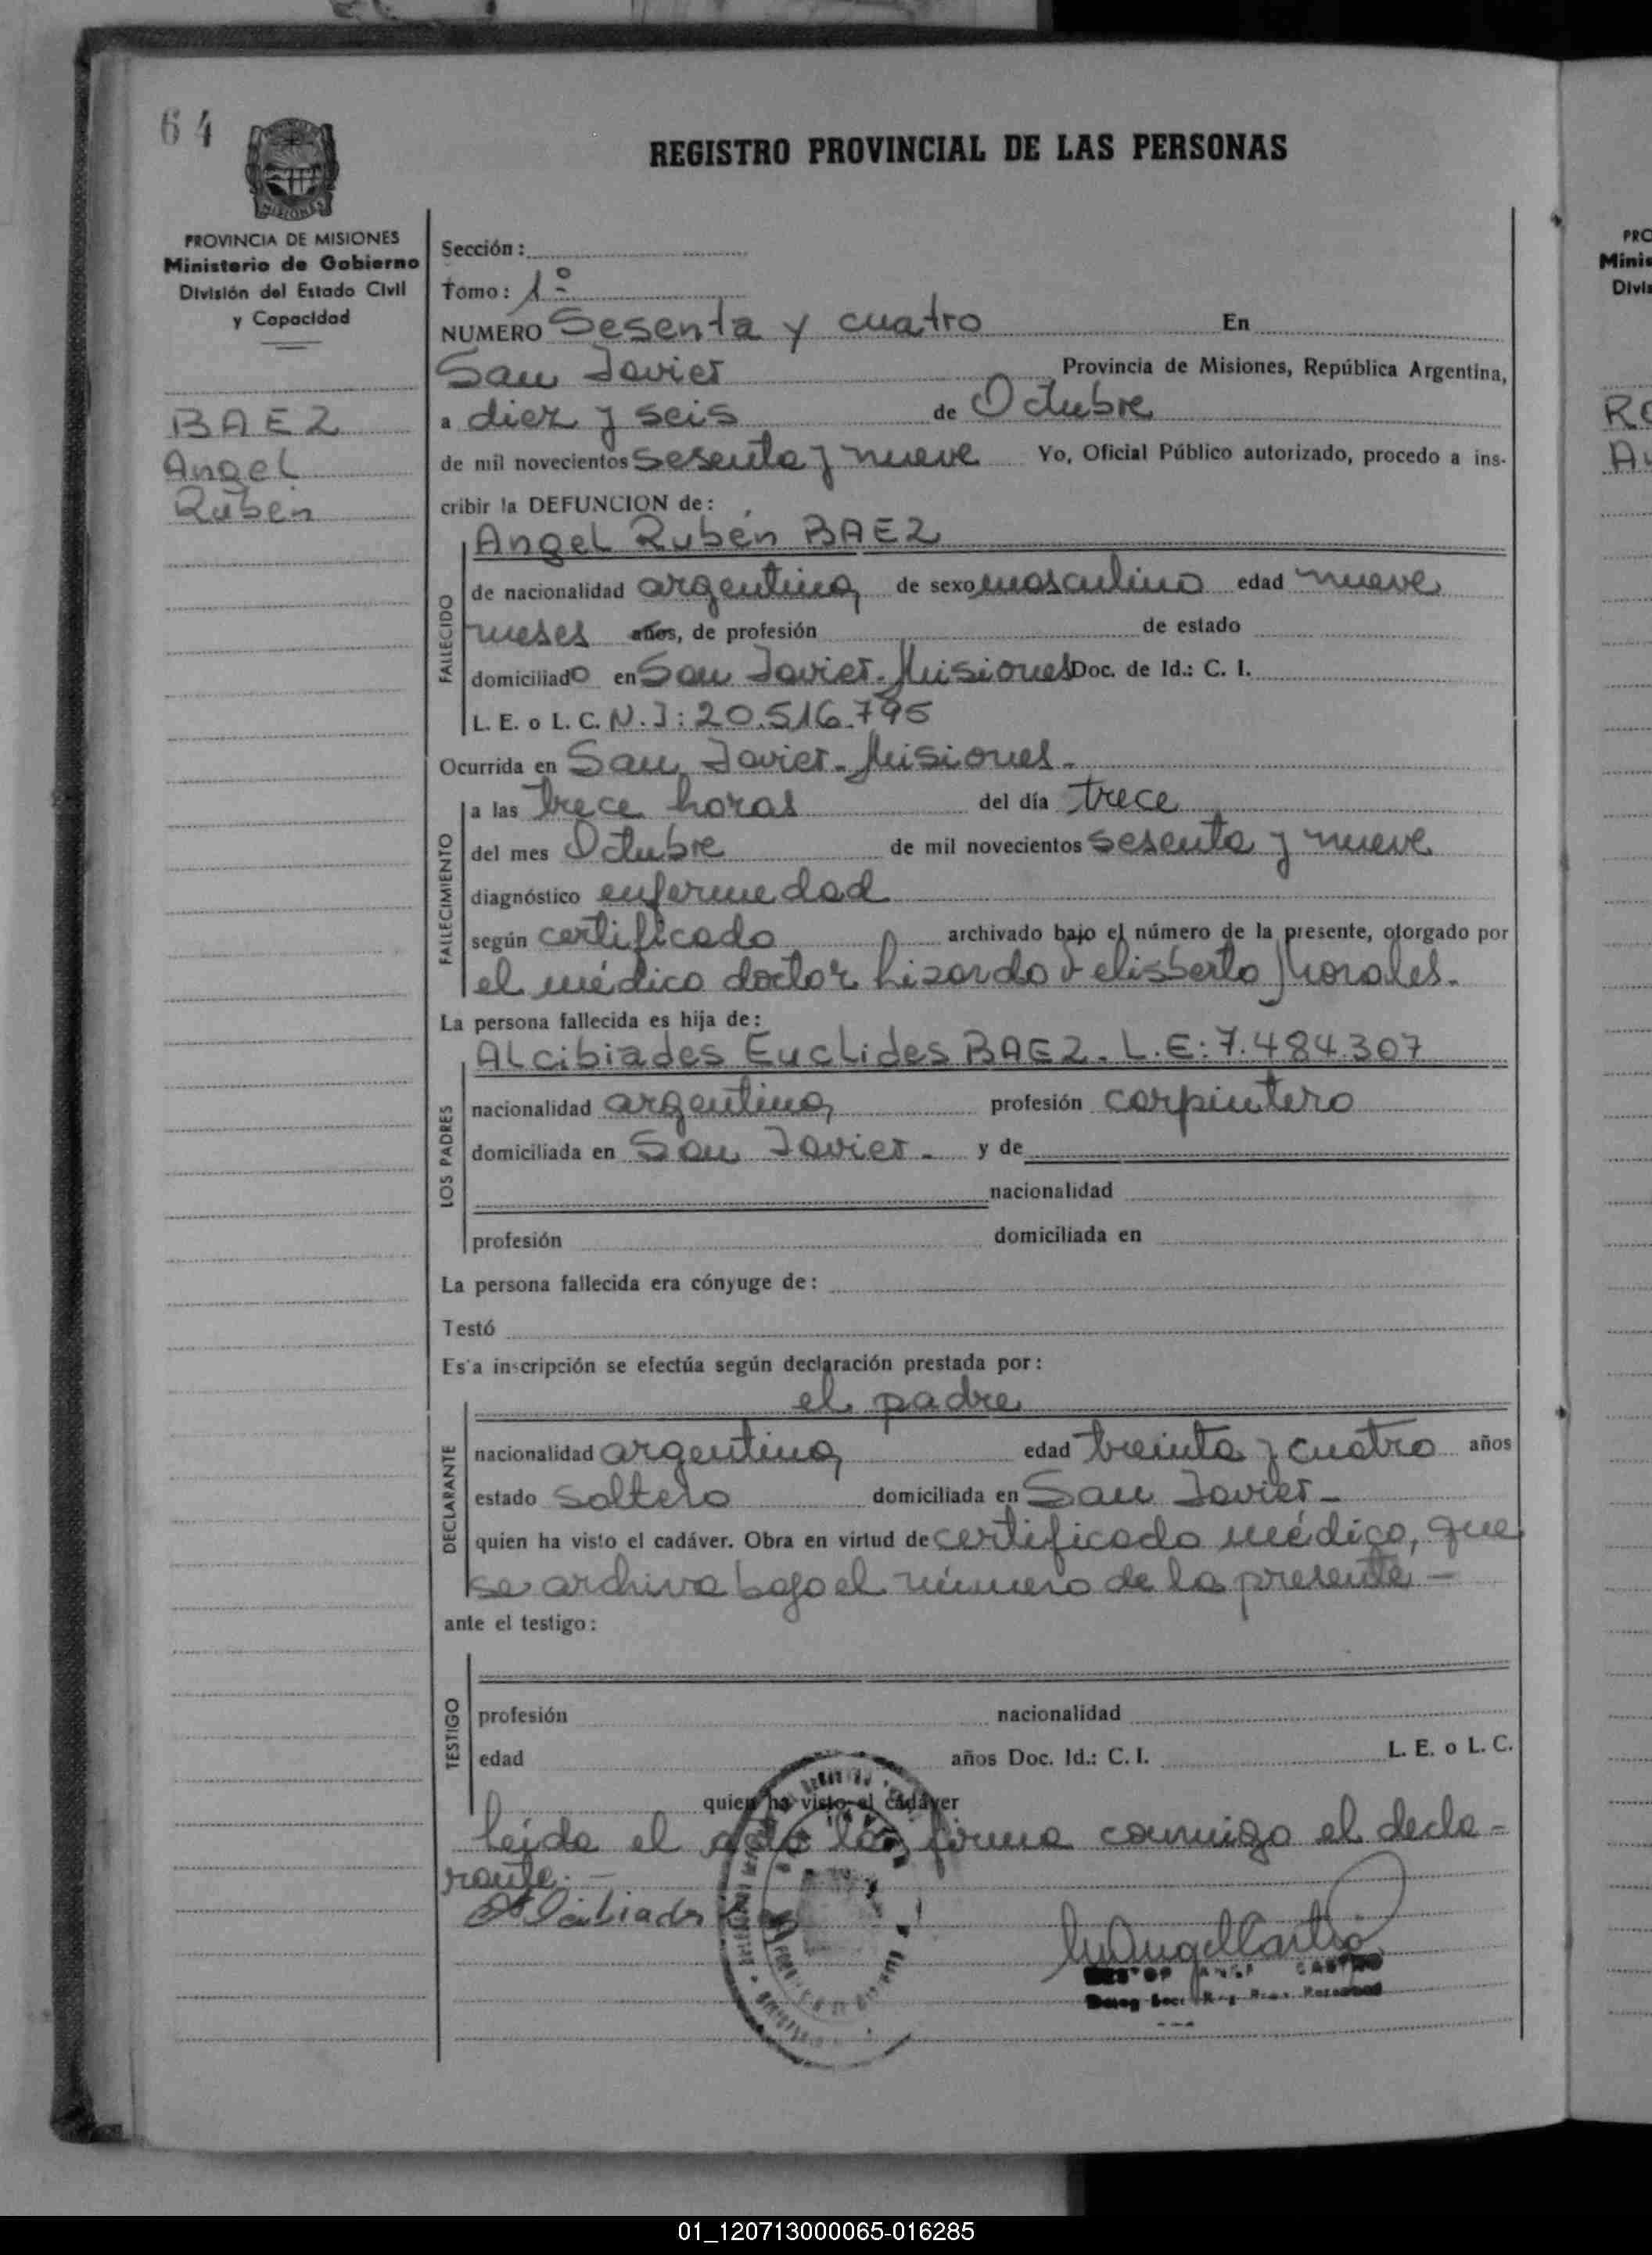 64
REGISTRO PROVINCIAL DE LAS PERSONAS
MISIONES
PROVINCIA DE MISIONES
Ministerio de Gobierno
División del Estado Civil
y Capacidad
BAEZ
Angel
Rubén
Sección:
Tomo: 1º
NUMERO Sesenta y cuatro En
San Javier Provincia de Misiones, República Argentina,
a diez y seis de Octubre
de mil novecientos sesenta y nueve Yo, Oficial Público autorizado, procedo a ins-
cribir la DEFUNCION de:
Angel Rubén BAEZ
FALLECIDO
de nacionalidad argentina, de sexo masculino edad nueve
meses años, de profesión de estado
domiciliado en San Javier-Misiones Doc. de Id.: C. I.
L. E. o L. C. N.I: 20.516.795
Ocurrida en San Javier-Misiones-
FALLECIMIENTO
a las trece horas del día trece
del mes Octubre de mil novecientos sesenta y nueve
diagnóstico enfermedad
según certificado archivado bajo el número de la presente, otorgado por
el médico doctor Lizardo Felisberto Morales.
La persona fallecida es hija de:
Alcibiades Euclides BAEZ-L.E: 7.484.307
LOS PADRES
nacionalidad argentina, profesión carpintero
domiciliada en San Javier- y de
nacionalidad
profesión domiciliada en
La persona fallecida era cónyuge de:
Testó
Es'a inscripción se efectúa según declaración prestada por:
el padre
DECLARANTE
nacionalidad argentina, edad treinta y cuatro años
estado soltero domiciliada en San Javier-
quien ha visto el cadáver. Obra en virtud de certificado médico, que
se archiva bajo el número de la presente-
ante el testigo:
TESTIGO
profesión nacionalidad
edad años Doc. Id.: C. I. L. E. o L. C.
quien ha visto el cadáver
leída el acta la firma conmigo el decla-
rante.-
Alcibiades
CASTRO
PRO
Minis
Divis
01_120713000065-016285